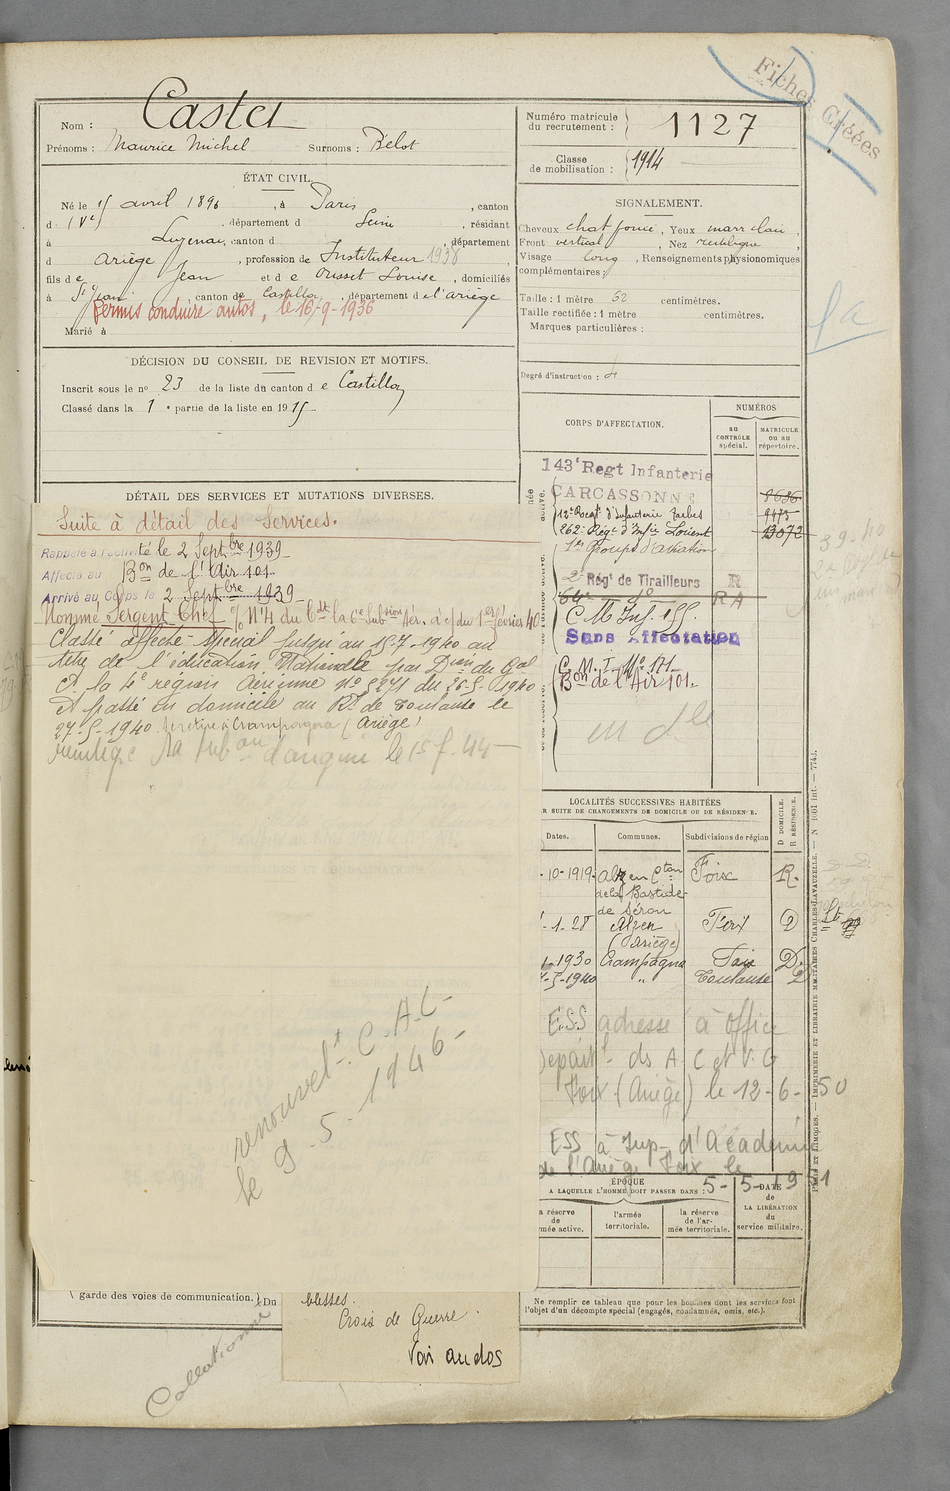 Fiches Créées
Nom : Castet
Prénoms : Maurice Michel Surnoms : Bélot
Numéro matricule du recrutement : 1127
Classe de mobilisation : 1914
ÉTAT CIVIL.
Né le 15 avril 1896, à Paris, canton
d (Ve), département d Seine, résidant
à Luzenac, canton d , département
d Ariège, profession de Instituteur 1938
fils de Jean et d e Ousset Louise, domiciliés
à St Jean canton de Castillon, département d e l'ariège
Permis conduire autos, le 16-9-1936
Marié à
SIGNALEMENT.
Cheveux chat foncé, Yeux marr clair,
Front vertical, Nez rectiligne,
Visage long, Renseignements physionomiques
complémentaires :
Taille : 1 mètre 62 centimètres.
Taille rectifiée : 1 mètre centimètres.
Marques particulières :
Degré d'instruction : 4
DÉCISION DU CONSEIL DE REVISION ET MOTIFS.
Inscrit sous le no 23 de la liste du canton d e Castillon
Classé dans la 1e partie de la liste en 1915
DÉTAIL DES SERVICES ET MUTATIONS DIVERSES.
Suite à détail des Services.
Rappelé à l'activité le 2 Septbre 1939
Affecté au Bon de l'Air 101
Arrivé au Corps le 2 Septbre 1939
Nommé Sergent Chef
Classé affecté spécial jusqu'au 15-7-1940 au
titre de l'éducation Nationale par Dion du Gal
Ct la 4e région Aérienne No 5271 du 26-5-1940
et passé en domicile au Rt de Toulouse le
27-5-1940. Champagna (Ariège)
le 15 f. 44
renouvelt C.A.C
le 9.5.1946
CORPS D'AFFECTATION.
NUMÉROS
AU CONTRÔLE spécial.
MATRICULE OU AU répertoire.
143e Regt Infanterie
CARCASSONNE 8686
12e Regt d'Infanterie Tarbes 9475
262e Régt d'Infie Lorient 13072
1er Groupe d'aviation
2e Régt de Tirailleurs R
64e do RA
C M Inf. 155
Sans Affectation
C. M. I. No 171
Bon de l'Air 101.
LOCALITÉS SUCCESSIVES HABITÉES
R SUITE DE CHANGEMENTS DE DOMICILE OU DE RÉSIDENCE.
Dates. Communes. Subdivisions de région D DOMICILE. R RÉSIDENCE.
-10-1919 Alzen Cton Foix R.
de la Bastide
de Sérou
-1-28 Alzen Foix D
(Ariège)
1-1930 Champagna Foix D
-5-1940 " Toulouse D
ESS adresse à Office
Départl ds A C et V G
Foix (Ariège) le 12-6-50
ESS à Insp- d'Académie
de l'Ariège Foix le
5-5-1951
ÉPOQUE
A LAQUELLE L'HOMME DOIT PASSER DANS :
a réserve de mée active.
l'armée territoriale.
la réserve de l'armée territoriale.
DATE de LA LIBÉRATION du service militaire.
Ne remplir ce tableau que pour les hommes dont les services font
l'objet d'un décompte spécial (engagés, condamnés, omis, etc.).
garde des voies de communication. Du
blessés.
Croix de Guerre
Voir au dos
Collationné
PARIS ET LIMOGES. — IMPRIMERIE ET LIBRAIRIE MILITAIRES CHARLES-LAVAUZELLE. — N 1061 int. — 7743.